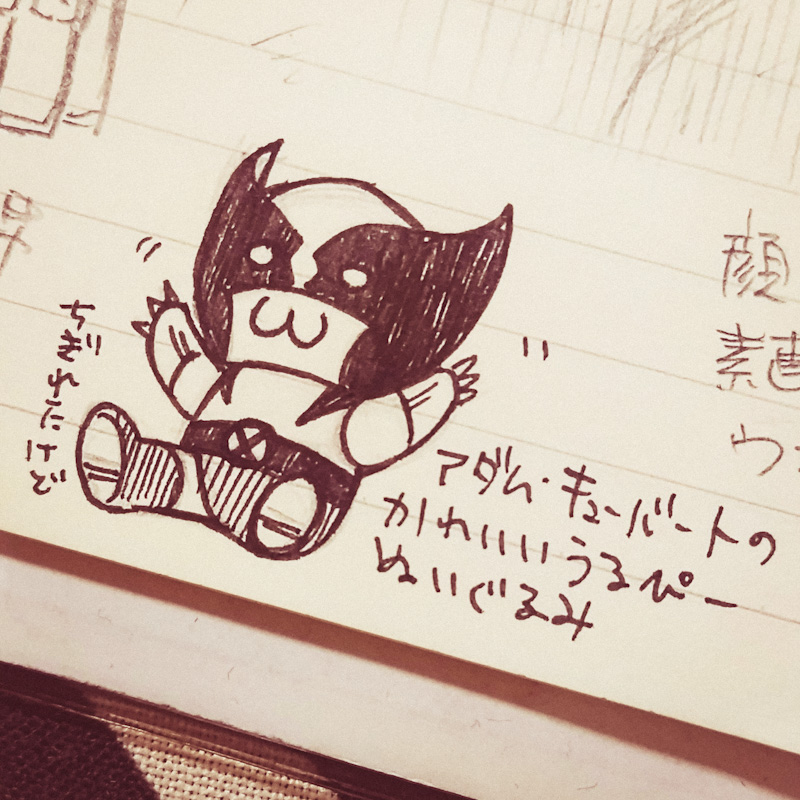 ちぎれたけど
アダム・キューバートの
かわいいうるぴー
ぬいぐるみ
顔
素
ウ